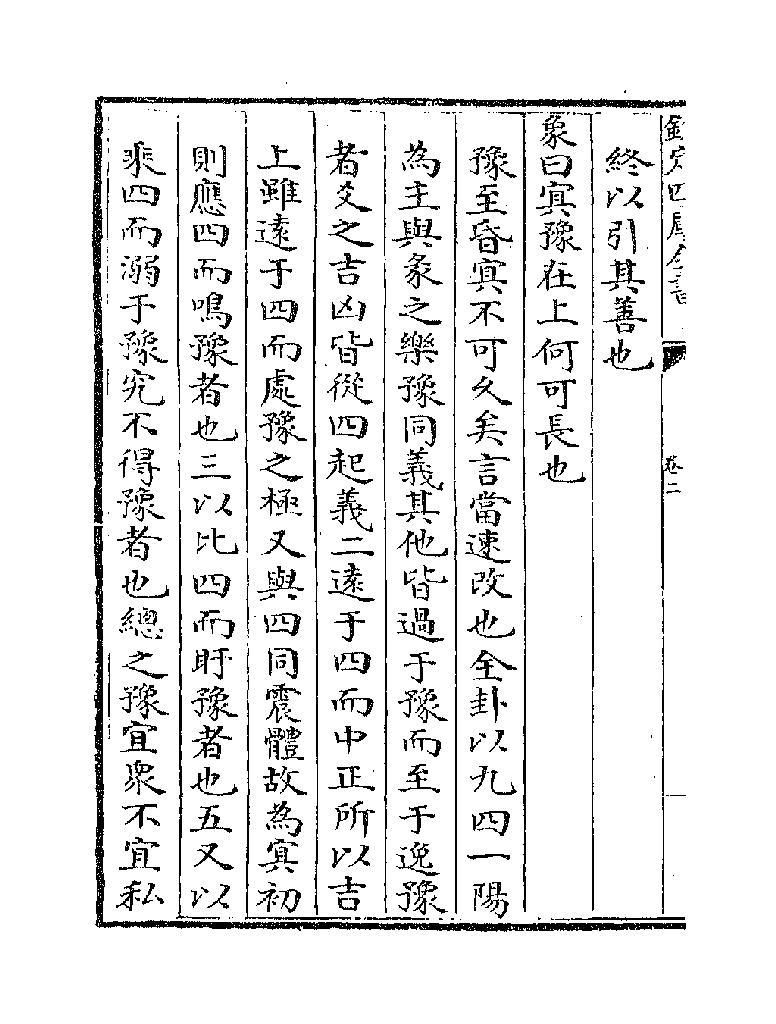 欽定四庫全書
卷二
終以引其善也
象曰㝠豫在上何可長也
豫至昏㝠不可久矣言當速改也全卦以九四一陽
為主與彖之樂豫同義其他皆過于豫而至于逸豫
者爻之吉凶皆從四起義二遠于四而中正所以吉
上雖遠于四而處豫之極又與四同震體故為㝠初
則應四而鳴豫者也三以比四而盱豫者也五又以
乘四而溺于豫究不得豫者也總之豫宜衆不宜私